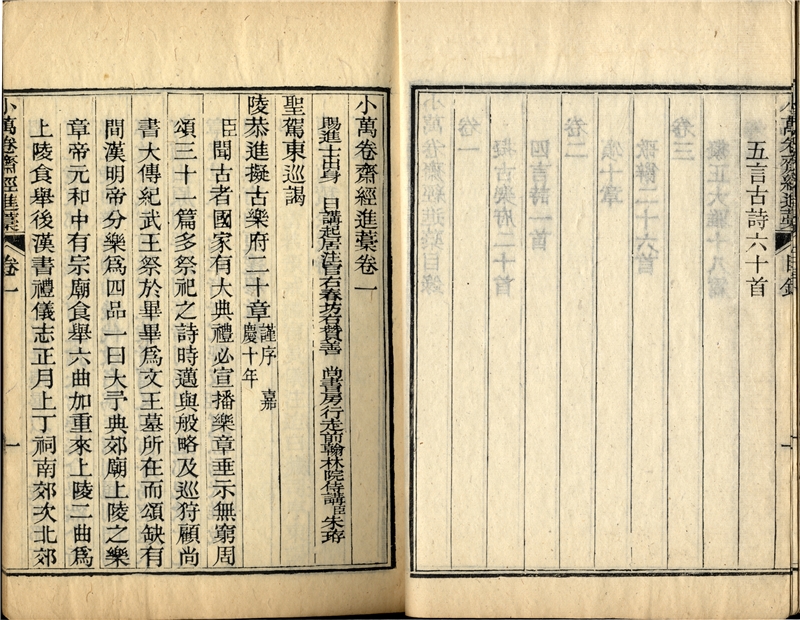 五言古詩六十首
小萬卷齋經進藁 目錄
一
小萬卷齋經進藁卷一
賜進士出身 日講起居注官右春坊右贊善 尚書房行走前翰林院侍講臣朱珔
聖駕東巡謁
陵恭進擬古樂府二十章謹序 嘉
慶十年
臣聞古者國家有大典禮必宣播樂章垂示無窮周
頌三十一篇多祭祀之詩時邁與般略及巡狩顧尚
書大傳紀武王祭於畢畢爲文王墓所在而頌缺有
間漢明帝分樂爲四品一曰大予典郊廟上陵之樂
章帝元和中有宗廟食舉六曲加重來上陵二曲爲
上陵食舉後漢書禮儀志正月上丁祠南郊次北郊
小萬卷齋經進藁 卷一
一